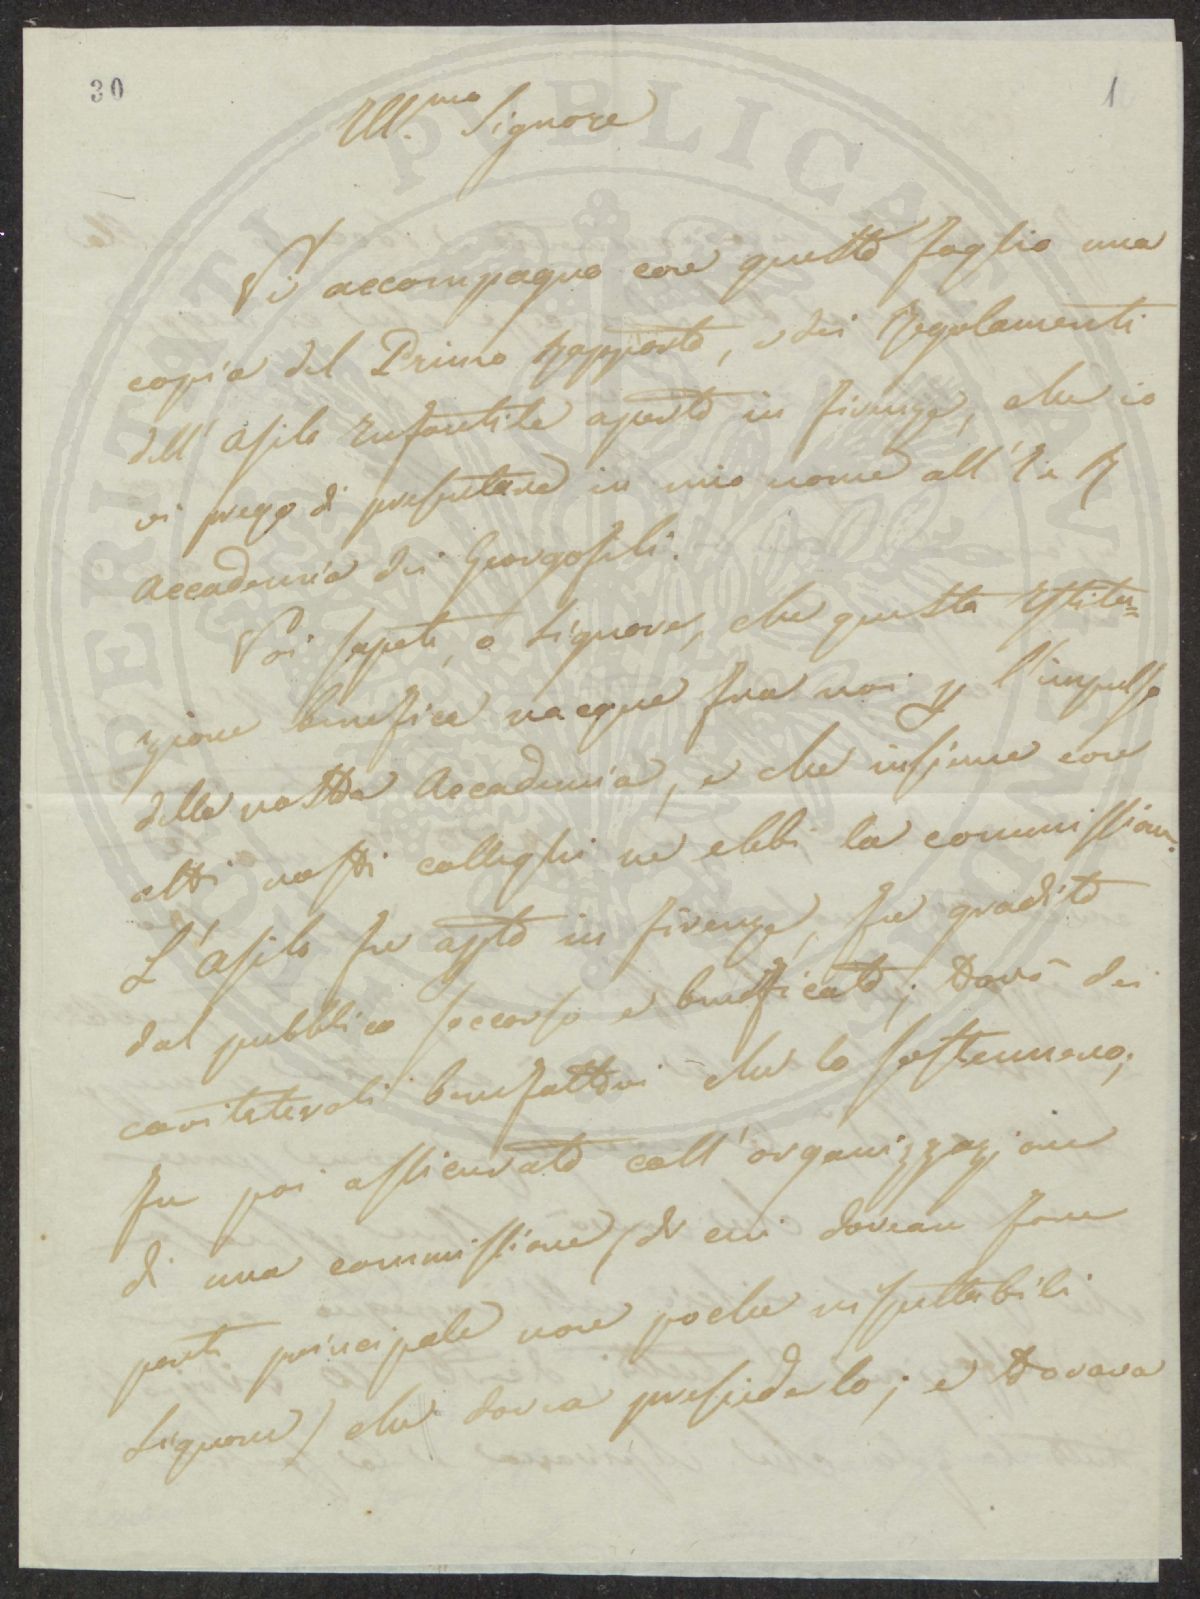 30
1
Ill.mo Signore
Vi accompagno con questo foglio una
copia del Primo Rapporto, e dei Regolamenti
dell'Asilo Infantile aperto in Firenze, che io
vi prego di presentare in mio nome all'I e R
Accademia dei Georgofili.
Voi sapete, o Signore, che questa Istitu=
zione benefica nacque fra noi p l'impulso
della nostra Accademia, e che insieme con
altri nostri colleghi ne ebbi la commissione.
L'Asilo fu apto in Firenze, fu gradito
dal pubblico soccorso e beneficato; trovò dei
caritatevoli benefattori che lo sostennero;
fu poi assicurato coll'organizzazione
di una commissione (di cui dovean fare
parte principale non poche rispettabili
Signore) che dovea presiederlo; e trovava
PUBLICAE
PROSPERITATI